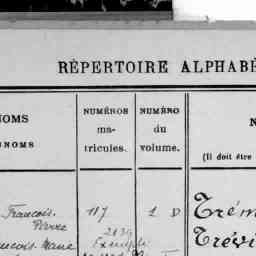 RÉPERTOIRE ALPHABÉ
NOMS
NOMS
NUMÉROS
ma-
tricules.
NUMÉRO
du
volume.
N
(Il doit être
Francois-
Pierre
117
1 D
Trém
2139
Trévi
Marie
Exempté